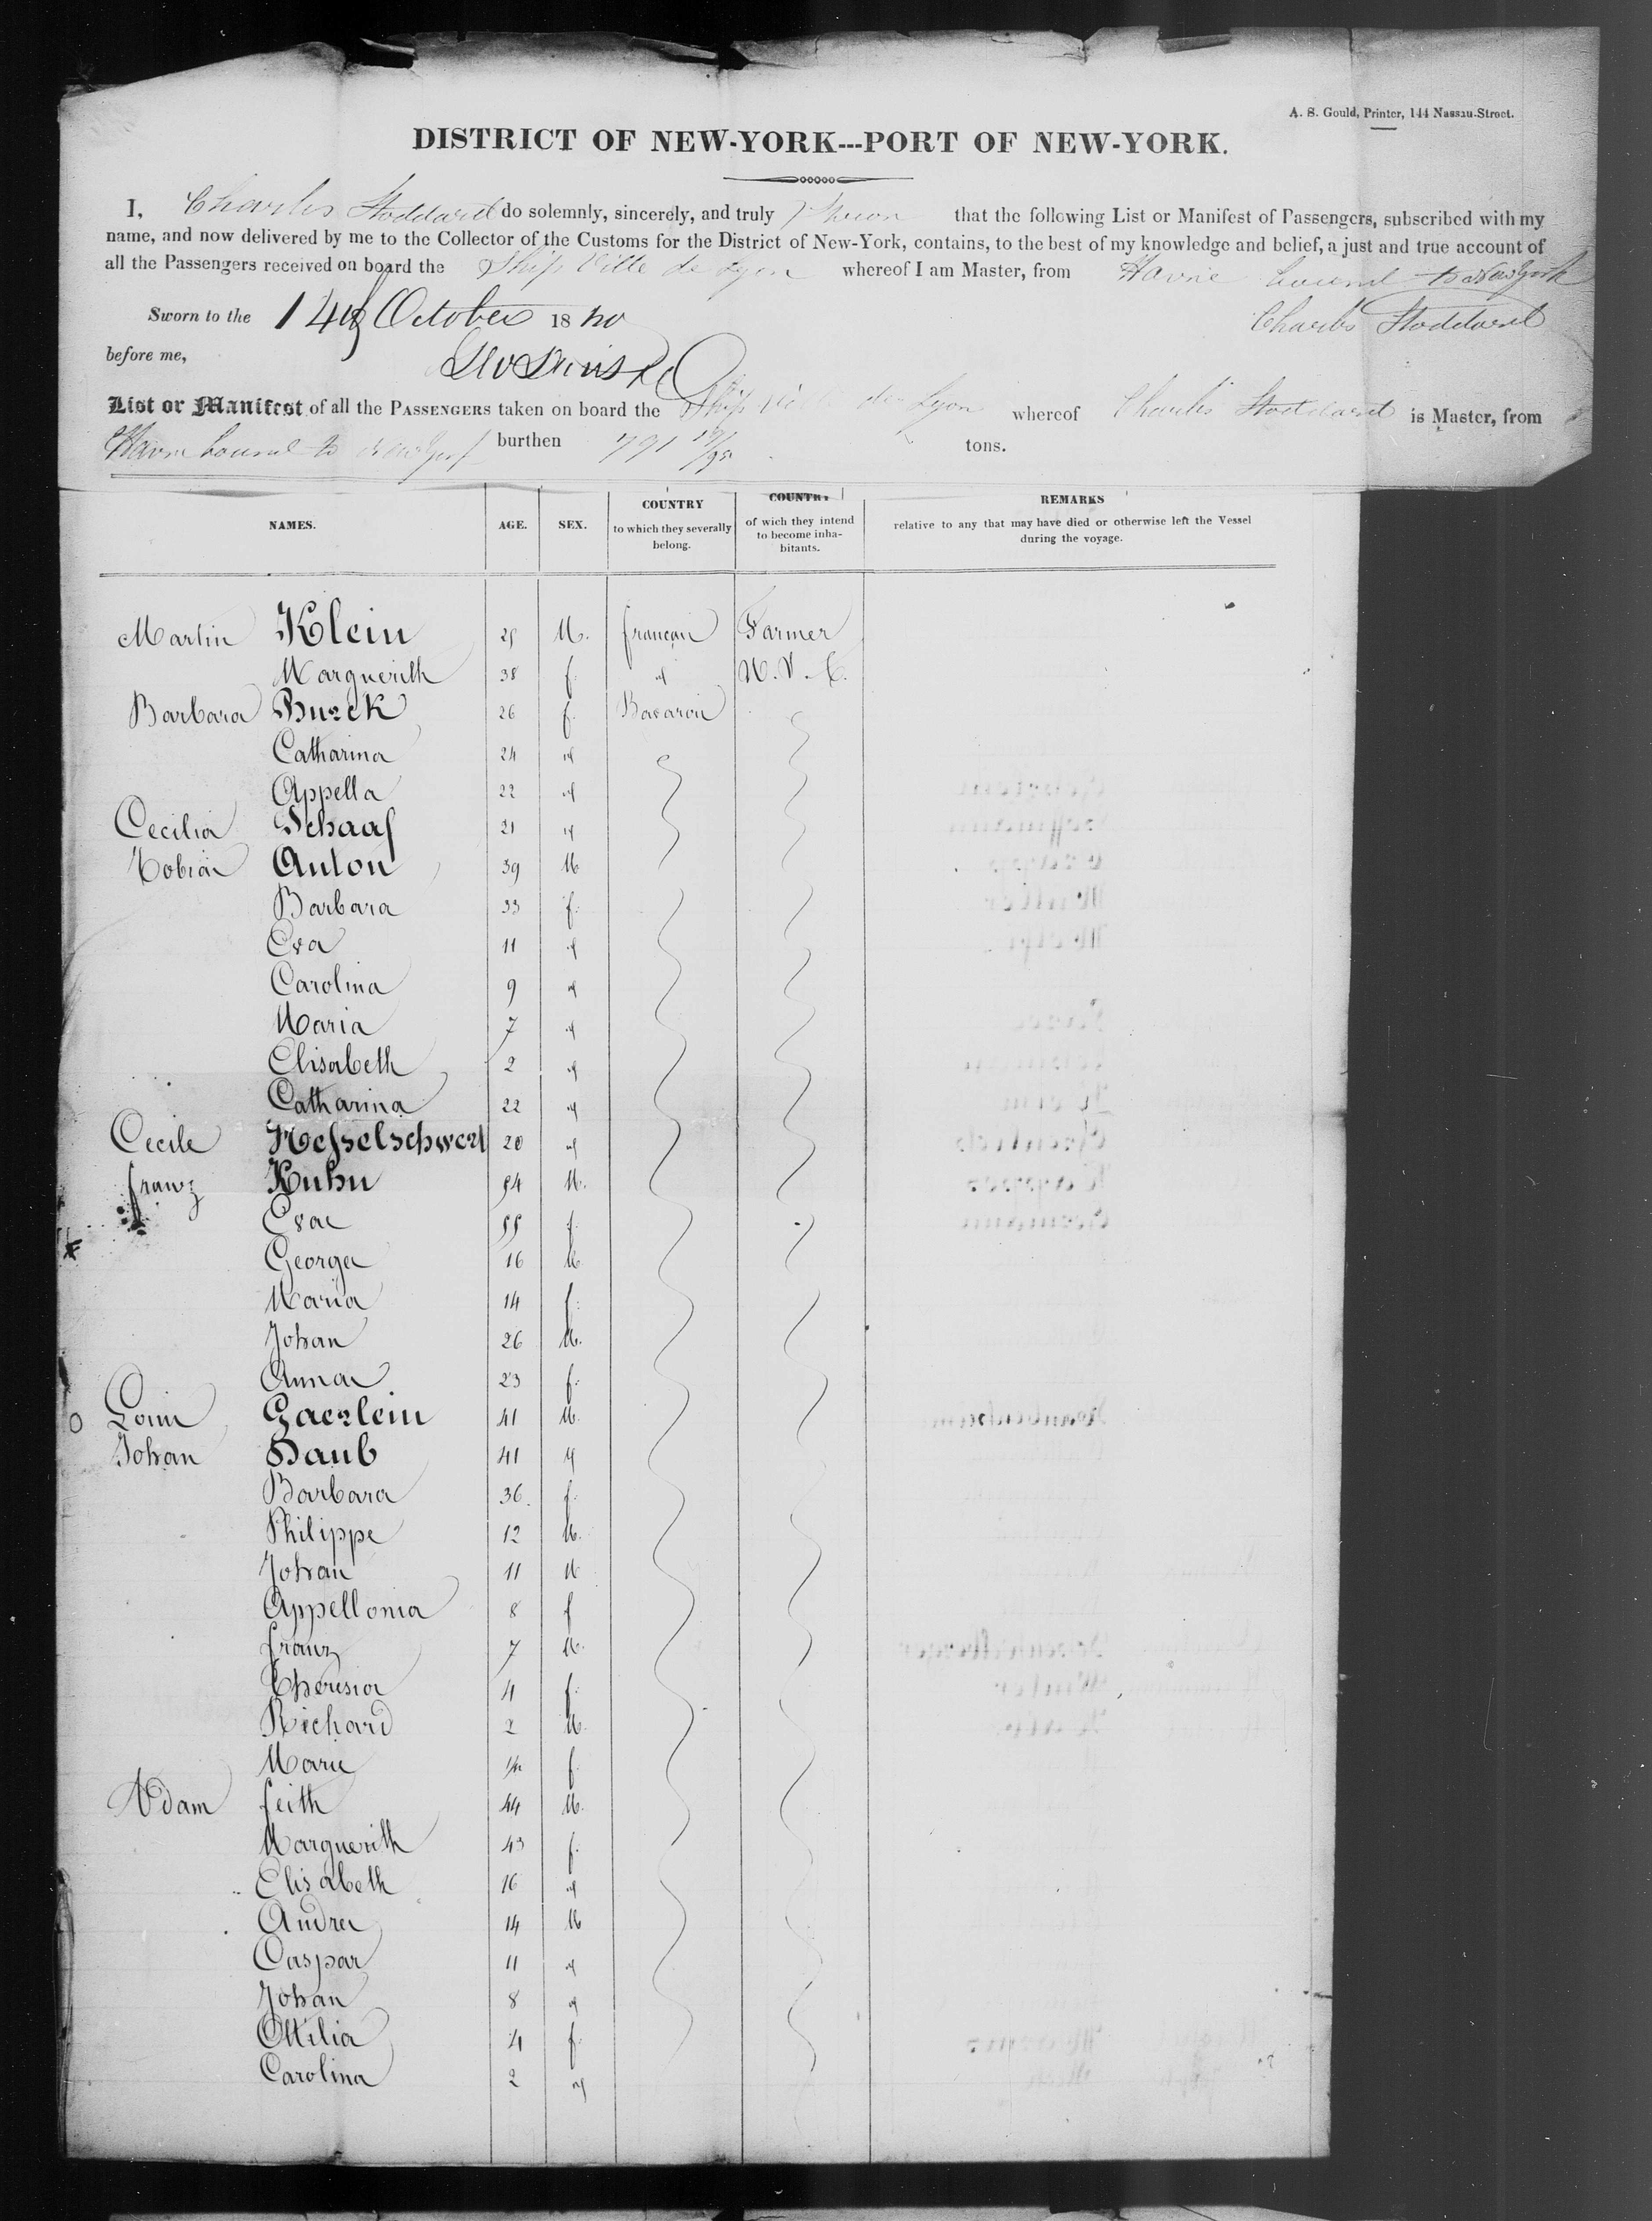 A. S. Gould, Printer, 144 Nassau-Street.
DISTRICT OF NEW-YORK---PORT OF NEW-YORK.
I, Charles Stoddard do solemnly, sincerely, and truly swear that the following List or Manifest of Passengers, subscribed with my
name, and now delivered by me to the Collector of the Customs for the District of New-York, contains, to the best of my knowledge and belief, a just and true account of
all the Passengers received on board the Ship Ville de Lyon whereof I am Master, from Havre bound to New York
Sworn to the 14th October 1840 Charles Stoddard
before me,
List or Manifest of all the PASSENGERS taken on board the Ship Ville de Lyon whereof Charles Stoddard is Master, from
Havre bound to New York burthen 791 19/95 tons.
NAMES. AGE. SEX. COUNTRY to which they severally belong. COUNTRY of wich they intend to become inhabitants. REMARKS relative to any that may have died or otherwise left the Vessel during the voyage.
Martin Klein M. francais Farmer
Marguerith 38 f. " U. S. A.
Barbara Burck 26 f. Bavaroi
Catharina 24 "
Appella 22 "
Cecilia Schaaf 21 "
Tobia Anton 39 M
Barbara 33 f.
Eva 11 "
Carolina 9 "
Maria 7 "
Elisabeth 2 "
Catharina 22 "
Cecile Hesselschwert 20 "
franz Kuhn 54 M.
Eva 55 f.
George 16 M.
Maria 14 f.
Johan 26 M.
Anna 23 f.
Louis Gaerlein 41 M.
Johan Daub 41 "
Barbara 36 f.
Philippe 12 M.
Johan 11 M
Appellonia 8 f
franz 7 M.
Theresia 4 f.
Richard 2 M.
Marie f.
Adam feith 44 M.
Marguerith 43 f.
Elisabeth 16 "
Andrea 14 M
Caspar 11 "
Johan 8 "
Ottilia 4 f.
Carolina 2 "